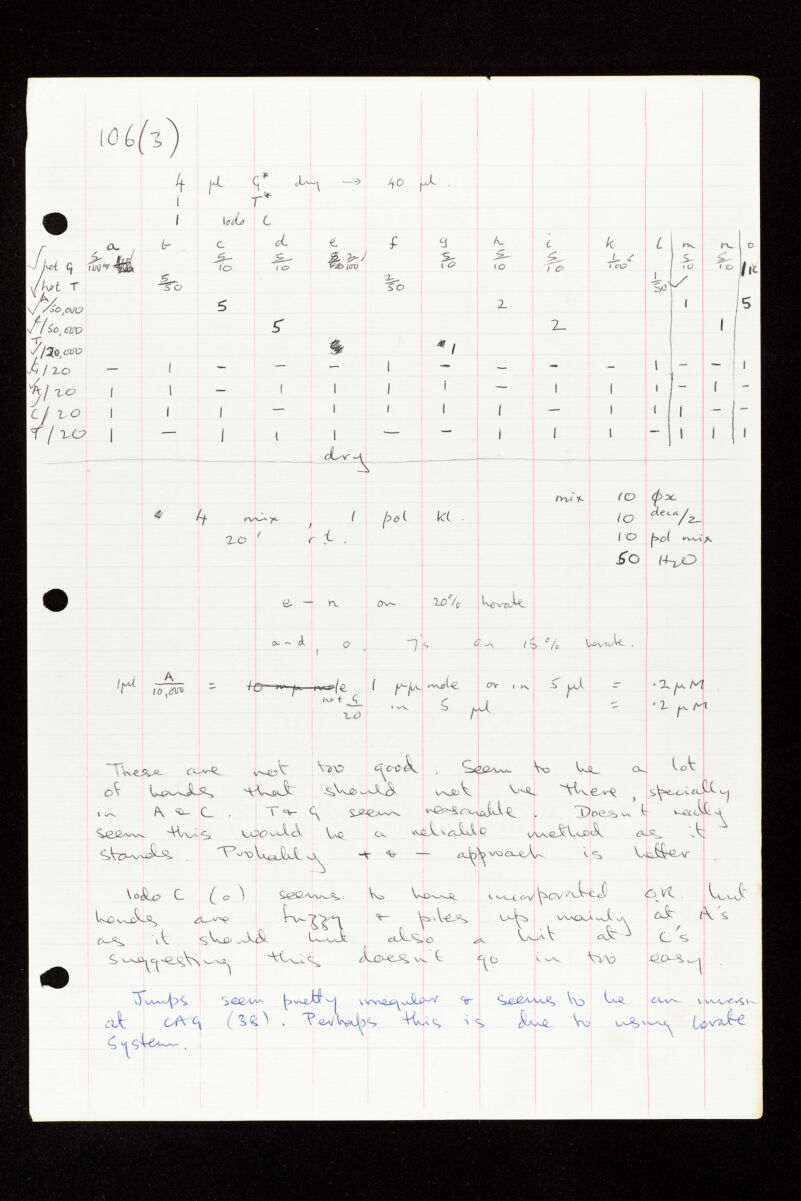 106(3)
4 µl G* dry → 40 µl.
1 T*
1 Iodo C
a b c d e f g h i k l m n o
√hot G 5/100 5/10 5/10 2/100 5/10 5/10 5/10 1/100 5/10 5/10
√hot T 5/50 2/50 1/50 √
√A/50,000 5 2 1 5
√C/50,000 5 2 1
√T/20,000 1
√G/20 – 1 – – – 1 – – – – 1 – – 1
√A/20 1 1 – 1 1 1 1 – 1 1 1 – 1 –
√C/20 1 1 1 – 1 1 1 1 – 1 1 1 – –
T/20 1 – 1 1 1 – – 1 1 1 – 1 1 1
dry
mix 10 ϕx
4 mix, 1 pol Kl. 10 deca/2
20' r.t. 10 pol mix
50 H2O
e – n on 20% borate
a–d, o, 7's on 15% borate.
1µl A/10,000 = 1 µµmole or in 5 µl = ·2 µM
hot G/20 in 5 µl = ·2 µM
These are not too good. Seem to be a lot
of bands that should not be there, specially
in A & C. T & G seem reasonable. Doesn't really
seem this would be a reliable method as it
stands. Probably + & – approach is better.
Iodo C (o) seems to have incorporated O.K. but
bands are fuzzy & piles up mainly at A's
as it should but also a bit at C's
suggesting this doesn't go in too easy.
Jumps seem pretty irregular & seems to be an inversion
at CAG (38). Perhaps this is due to using borate
system.